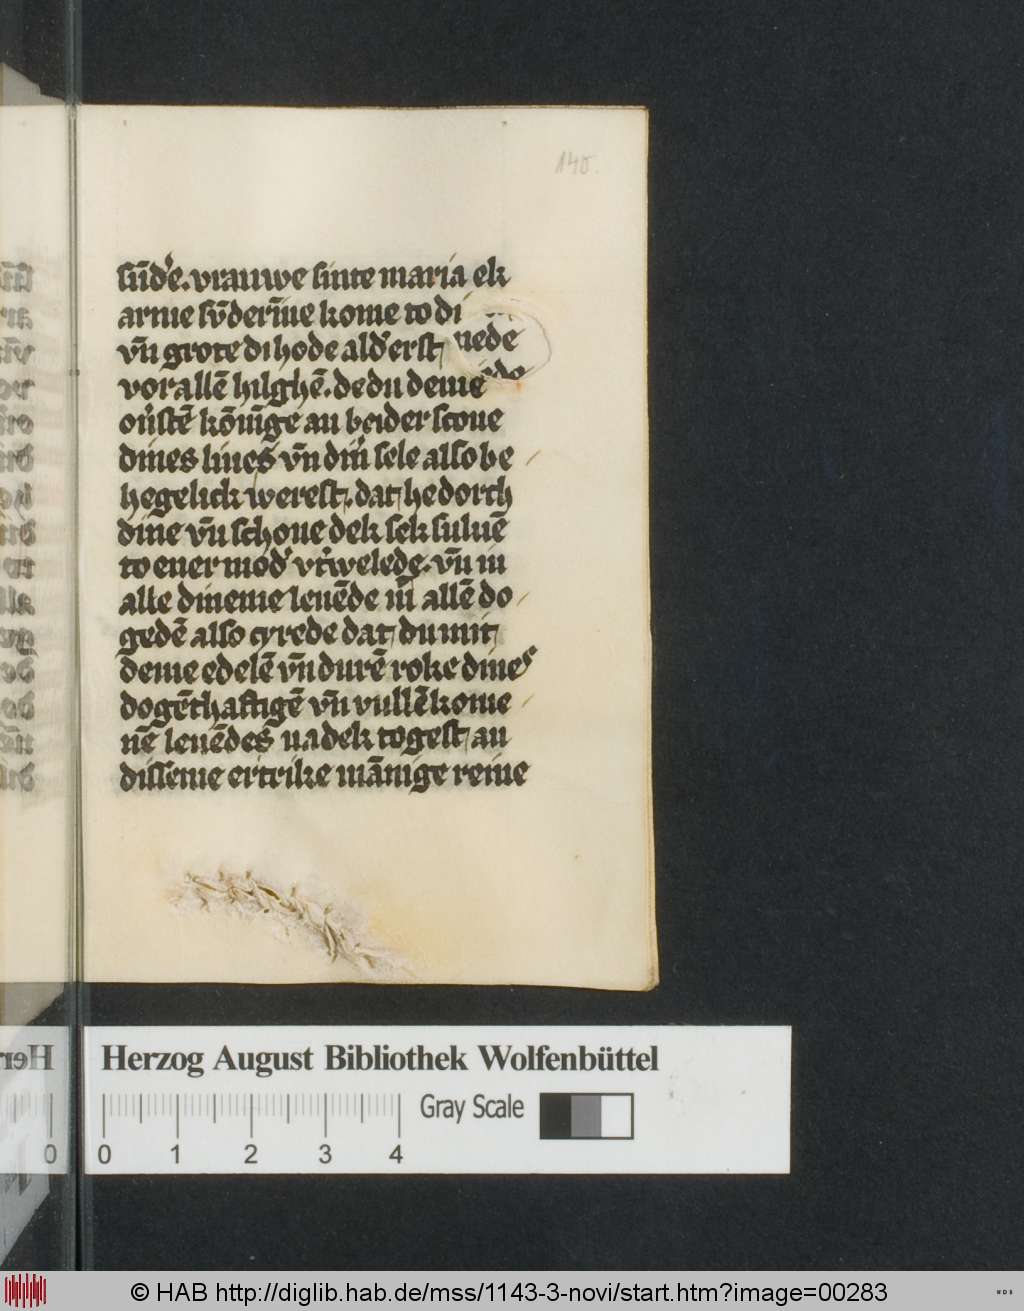 140.
sūd'e. vrauwe sinte maria ek
arme sv̄derīne kome to di
vn̄ grote di hode ald'erst nedē
vor allē hilghē. de du deme
ou'stē kōnīge an beider scone
dines liues vn̄ din' sele also be
hegelick werest. dat he dorch
dine vn̄ schone dek sek suluē
to ener mod' vt'welede. vn̄ in
alle dineme leuēde īn allē do
gedē also cyrede dat du mit
deme edelē vn̄ durē roke dines
dogēthaftigē vn̄ vullēkome
nē leuēdes na dek togest an
disseme ertrike mānige reine
Herzog August Bibliothek Wolfenbüttel
0 1 2 3 4
Gray Scale
© HAB http://diglib.hab.de/mss/1143-3-novi/start.htm?image=00283